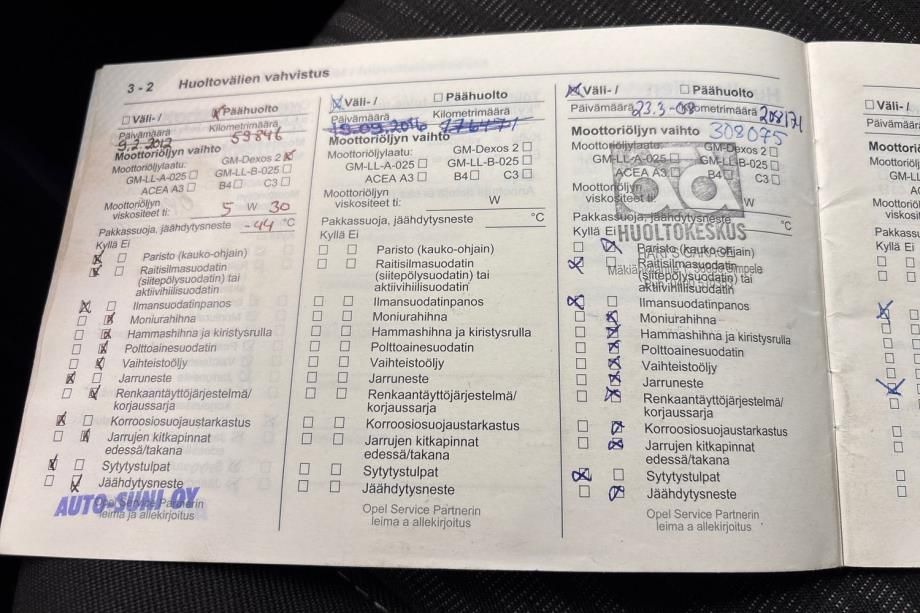 3 - 2 Huoltovälien vahvistus
☐ Väli- / ☒ Päähuolto
Päivämäärä Kilometrimäärä
9.2.2012 59846
Moottoriöljyn vaihto
Moottoriöljylaatu: GM-Dexos 2 ☒
GM-LL-A-025 ☐ GM-LL-B-025 ☐
ACEA A3 ☐ B4 ☐ C3 ☐
Moottoriöljyn
viskositeet ti: 5 W 30
Pakkassuoja, jäähdytysneste -44 °C
Kyllä Ei
☒ ☐ Paristo (kauko-ohjain)
☒ ☐ Raitisilmasuodatin
(siitepölysuodatin) tai
aktiivihiilisuodatin
☒ ☐ Ilmansuodatinpanos
☐ ☒ Moniurahihna
☐ ☒ Hammashihna ja kiristysrulla
☐ ☒ Polttoainesuodatin
☐ ☒ Vaihteistoöljy
☒ ☐ Jarruneste
☐ ☒ Renkaantäyttöjärjestelmä/
korjaussarja
☒ ☐ Korroosiosuojaustarkastus
☐ ☒ Jarrujen kitkapinnat
edessä/takana
☒ ☐ Sytytystulpat
☐ ☒ Jäähdytysneste
AUTO-SUNI OY
Opel Service Partnerin
leima ja allekirjoitus
☒ Väli- / ☐ Päähuolto
Päivämäärä Kilometrimäärä
19.09.2016
Moottoriöljyn vaihto
Moottoriöljylaatu: GM-Dexos 2 ☐
GM-LL-A-025 ☐ GM-LL-B-025 ☐
ACEA A3 ☐ B4 ☐ C3 ☐
Moottoriöljyn
viskositeet ti: W
Pakkassuoja, jäähdytysneste °C
Kyllä Ei
☐ ☐ Paristo (kauko-ohjain)
☐ ☐ Raitisilmasuodatin
(siitepölysuodatin) tai
aktiivihiilisuodatin
☐ ☐ Ilmansuodatinpanos
☐ ☐ Moniurahihna
☐ ☐ Hammashihna ja kiristysrulla
☐ ☐ Polttoainesuodatin
☐ ☐ Vaihteistoöljy
☐ ☐ Jarruneste
☐ ☐ Renkaantäyttöjärjestelmä/
korjaussarja
☐ ☐ Korroosiosuojaustarkastus
☐ ☐ Jarrujen kitkapinnat
edessä/takana
☐ ☐ Sytytystulpat
☐ ☐ Jäähdytysneste
Opel Service Partnerin
leima a allekirjoitus
☒ Väli- / ☐ Päähuolto
Päivämäärä 23.3-08 Kilometrimäärä 208171
Moottoriöljyn vaihto 308075
Moottoriöljylaatu: GM-Dexos 2 ☐
GM-LL-A-025 ☐ GM-LL-B-025 ☐
ACEA A3 ☐ B4 ☐ C3 ☐
Moottoriöljyn
viskositeet ti: W
ad
Pakkassuoja, jäähdytysneste °C
Kyllä Ei
HUOLTOKESKUS
☐ ☒ Paristo (kauko-ohjain)
☒ ☐ Raitisilmasuodatin
(siitepölysuodatin) tai
aktiivihiilisuodatin
☒ ☐ Ilmansuodatinpanos
☐ ☒ Moniurahihna
☐ ☒ Hammashihna ja kiristysrulla
☐ ☒ Polttoainesuodatin
☐ ☒ Vaihteistoöljy
☐ ☒ Jarruneste
☐ ☒ Renkaantäyttöjärjestelmä/
korjaussarja
☐ ☒ Korroosiosuojaustarkastus
☐ ☒ Jarrujen kitkapinnat
edessä/takana
☒ ☐ Sytytystulpat
☐ ☒ Jäähdytysneste
Opel Service Partnerin
leima a allekirjoitus
☐ Väli- /
Kyllä Ei